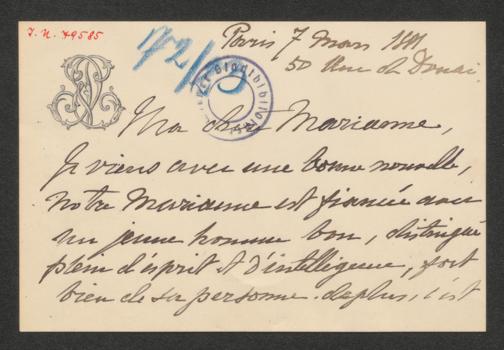 I. N. 49585
172/
Paris 7 Mars 1881
50 Rue de Douai.
Ma chère Marianne,
Je viens avec une bonne nouvelle,
notre Marianne est fiancée avec
un jeune homme bon, distingué
plein d'esprit et d'intelligence, fort
bien de sa personne. de plus, c'est